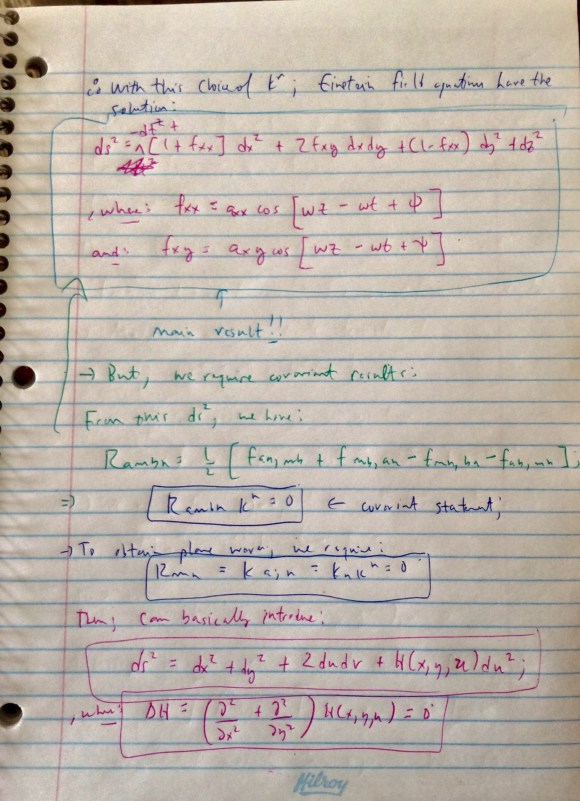 ∴ with this choice of k^r; Einstein field equations have the
solution:
-dt² +
ds² = ∧ [1 + fxx] dx² + 2fxy dxdy + (1-fxx) dy² + dz²
, where: fxx = axx cos [wz - wt + φ]
and: fxy = axy cos [wz - wt + ψ]
↑
main result!!
→ But, we require covariant results:
From this ds², we have:
Rambn = 1/2 [fan,mb + fmb,an - fmn,ba - fab,mn];
⇒ Rambn kⁿ = 0 ← covariant statement;
→ To obtain plane waves, we require:
Rmn = ka;n = kn kⁿ = 0
Then; can basically introduce:
ds² = dx² + dy² + 2dudv + H(x,y,u)du²;
, where: ΔH = (∂²/∂x² + ∂²/∂y²) H(x,y,u) = 0
Hilroy